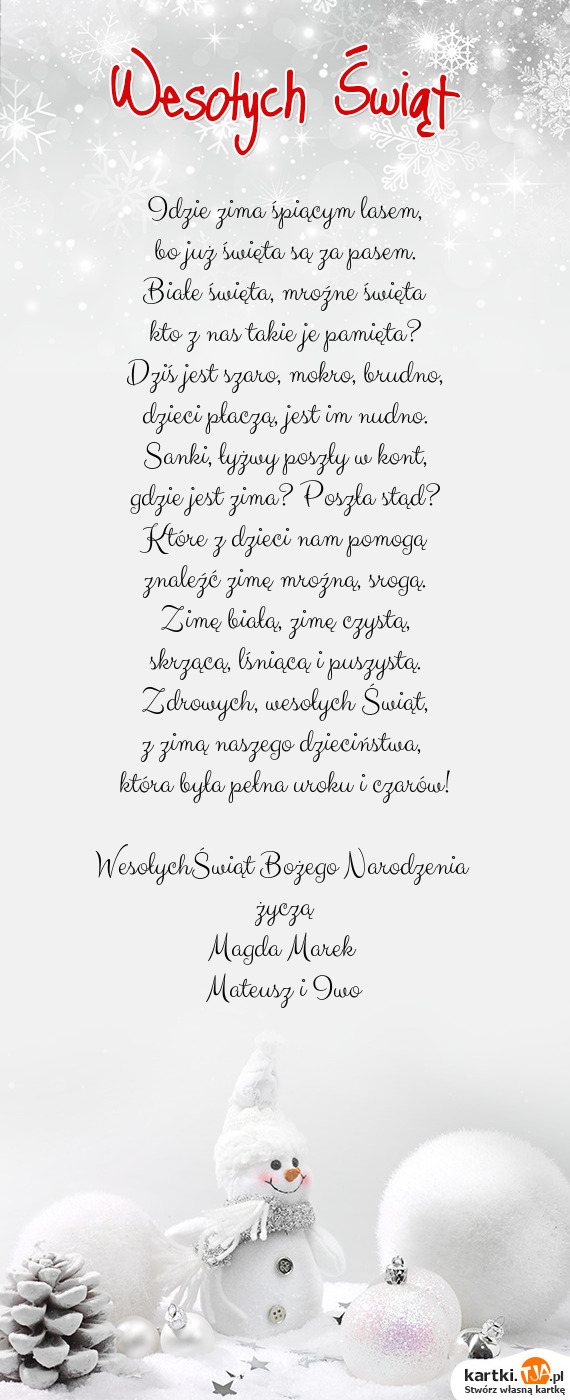 Wesołych Świąt
Idzie zima śpiącym lasem,
bo już święta są za pasem.
Białe święta, mroźne święta
kto z nas takie je pamięta?
Dziś jest szaro, mokro, brudno,
dzieci płaczą, jest im nudno.
Sanki, łyżwy poszły w kont,
gdzie jest zima? Poszła stąd?
Które z dzieci nam pomogą
znaleźć zimę mroźną, srogą.
Zimę białą, zimę czystą,
skrzącą, lśniącą i puszystą.
Zdrowych, wesołych Świąt,
z zimą naszego dzieciństwa,
która była pełna uroku i czarów!
WesołychŚwiąt Bożego Narodzenia
życzą
Magda Marek
Mateusz i Iwo
kartki.TJA.pl
Stwórz własną kartkę